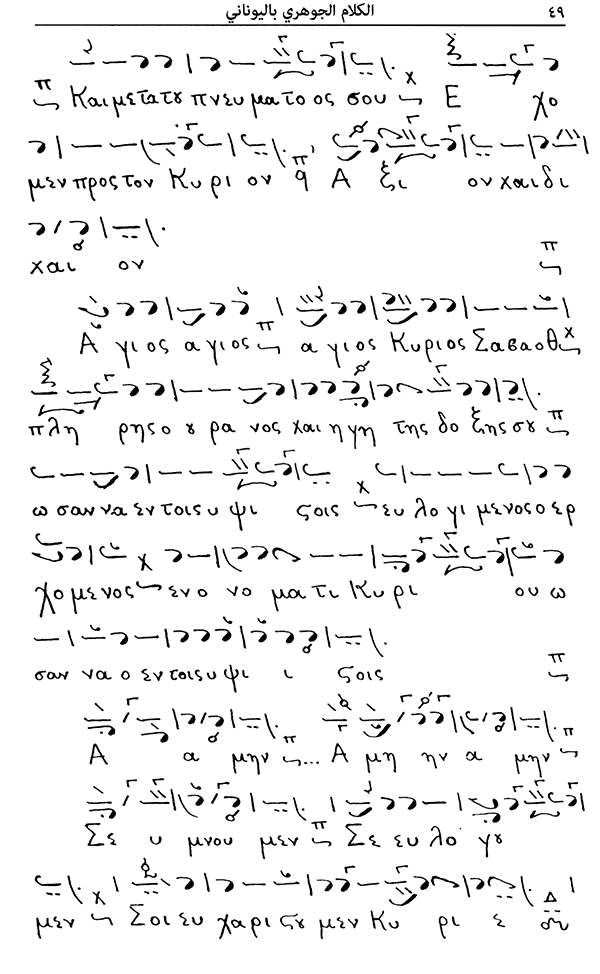 ٤٩ الكلام الجوهري باليوناني
Και μετα του πνευ μα το ος σου Ε χο
μεν προς τον Κυ ρι ον Α ξι ον και δι
και ον
Α γι ος α γι ος α γι ος Κυριος Σαβαοθ
πλη ρης ο ου ρα νος και η γη της δο ξης σου
ω σαν να εν τοις υ ψι ζοις ευ λο γι μενος ο ερ
χο μενος εν ο νο μα τι Κυ ρι ου ω
σαν να ο εν τοις υ ψι ι ζοις
Α α μην ... Α μη ην α μην
Σε υ μνου μεν Σε ευ λο γου
μεν Σοι ευ χαρις του μεν Κυ ρι ε